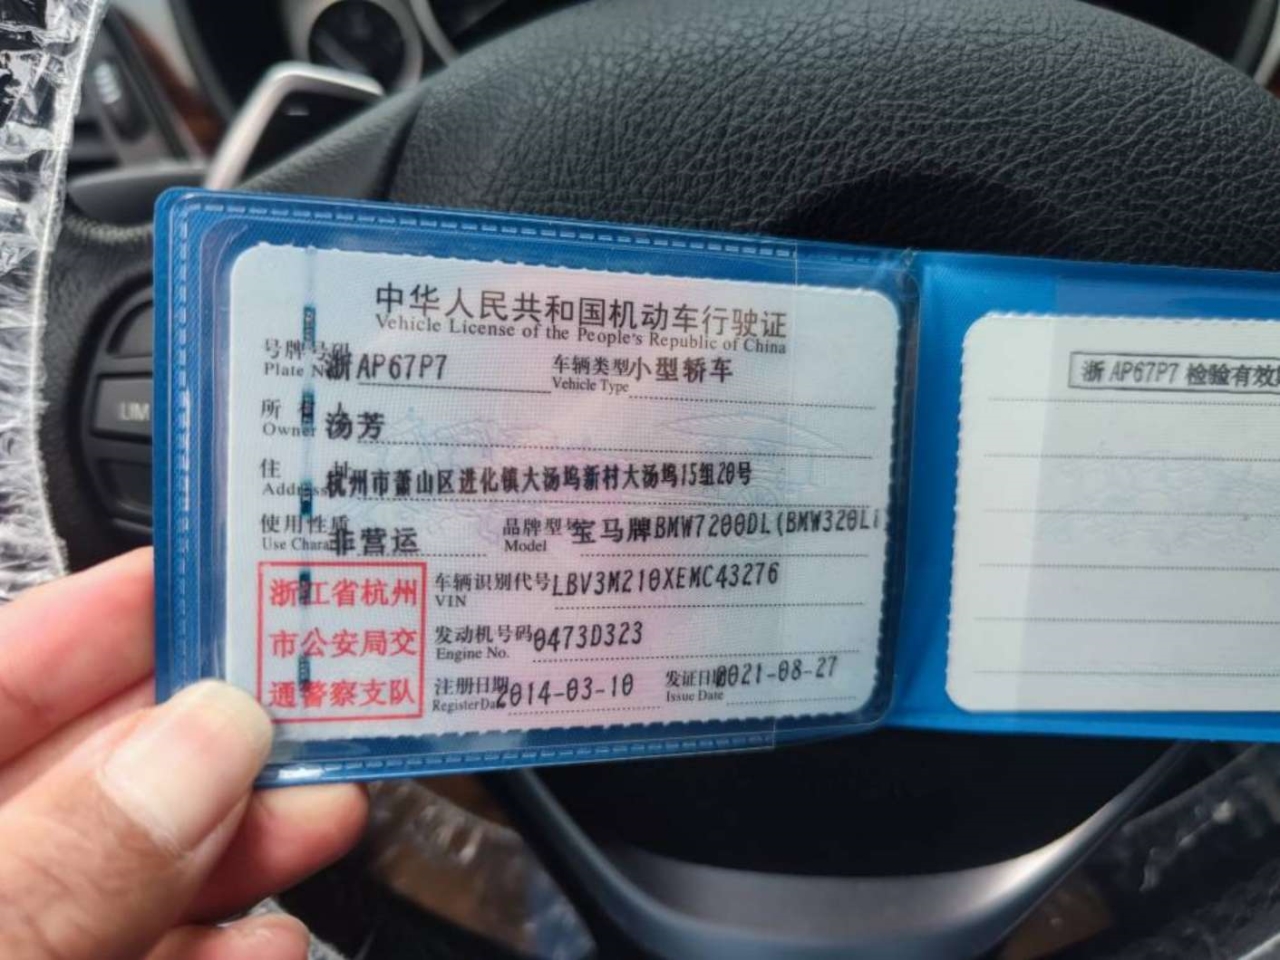 中华人民共和国机动车行驶证
Vehicle License of the People's Republic of China
号牌号码 浙AP67P7 车辆类型 小型轿车
Plate No. Vehicle Type
所有人 汤芳
Owner
住址 杭州市萧山区进化镇大汤坞新村大汤坞15组20号
Address
使用性质 非营运 品牌型号 宝马牌BMW7200DL(BMW320Li
Use Chara Model
浙江省杭州
市公安局交
通警察支队
车辆识别代号 LBV3M210XEMC43276
VIN
发动机号码 0473D323
Engine No.
注册日期 2014-03-10 发证日期 2021-08-27
Register Da Issue Date
浙AP67P7 检验有效
LIM